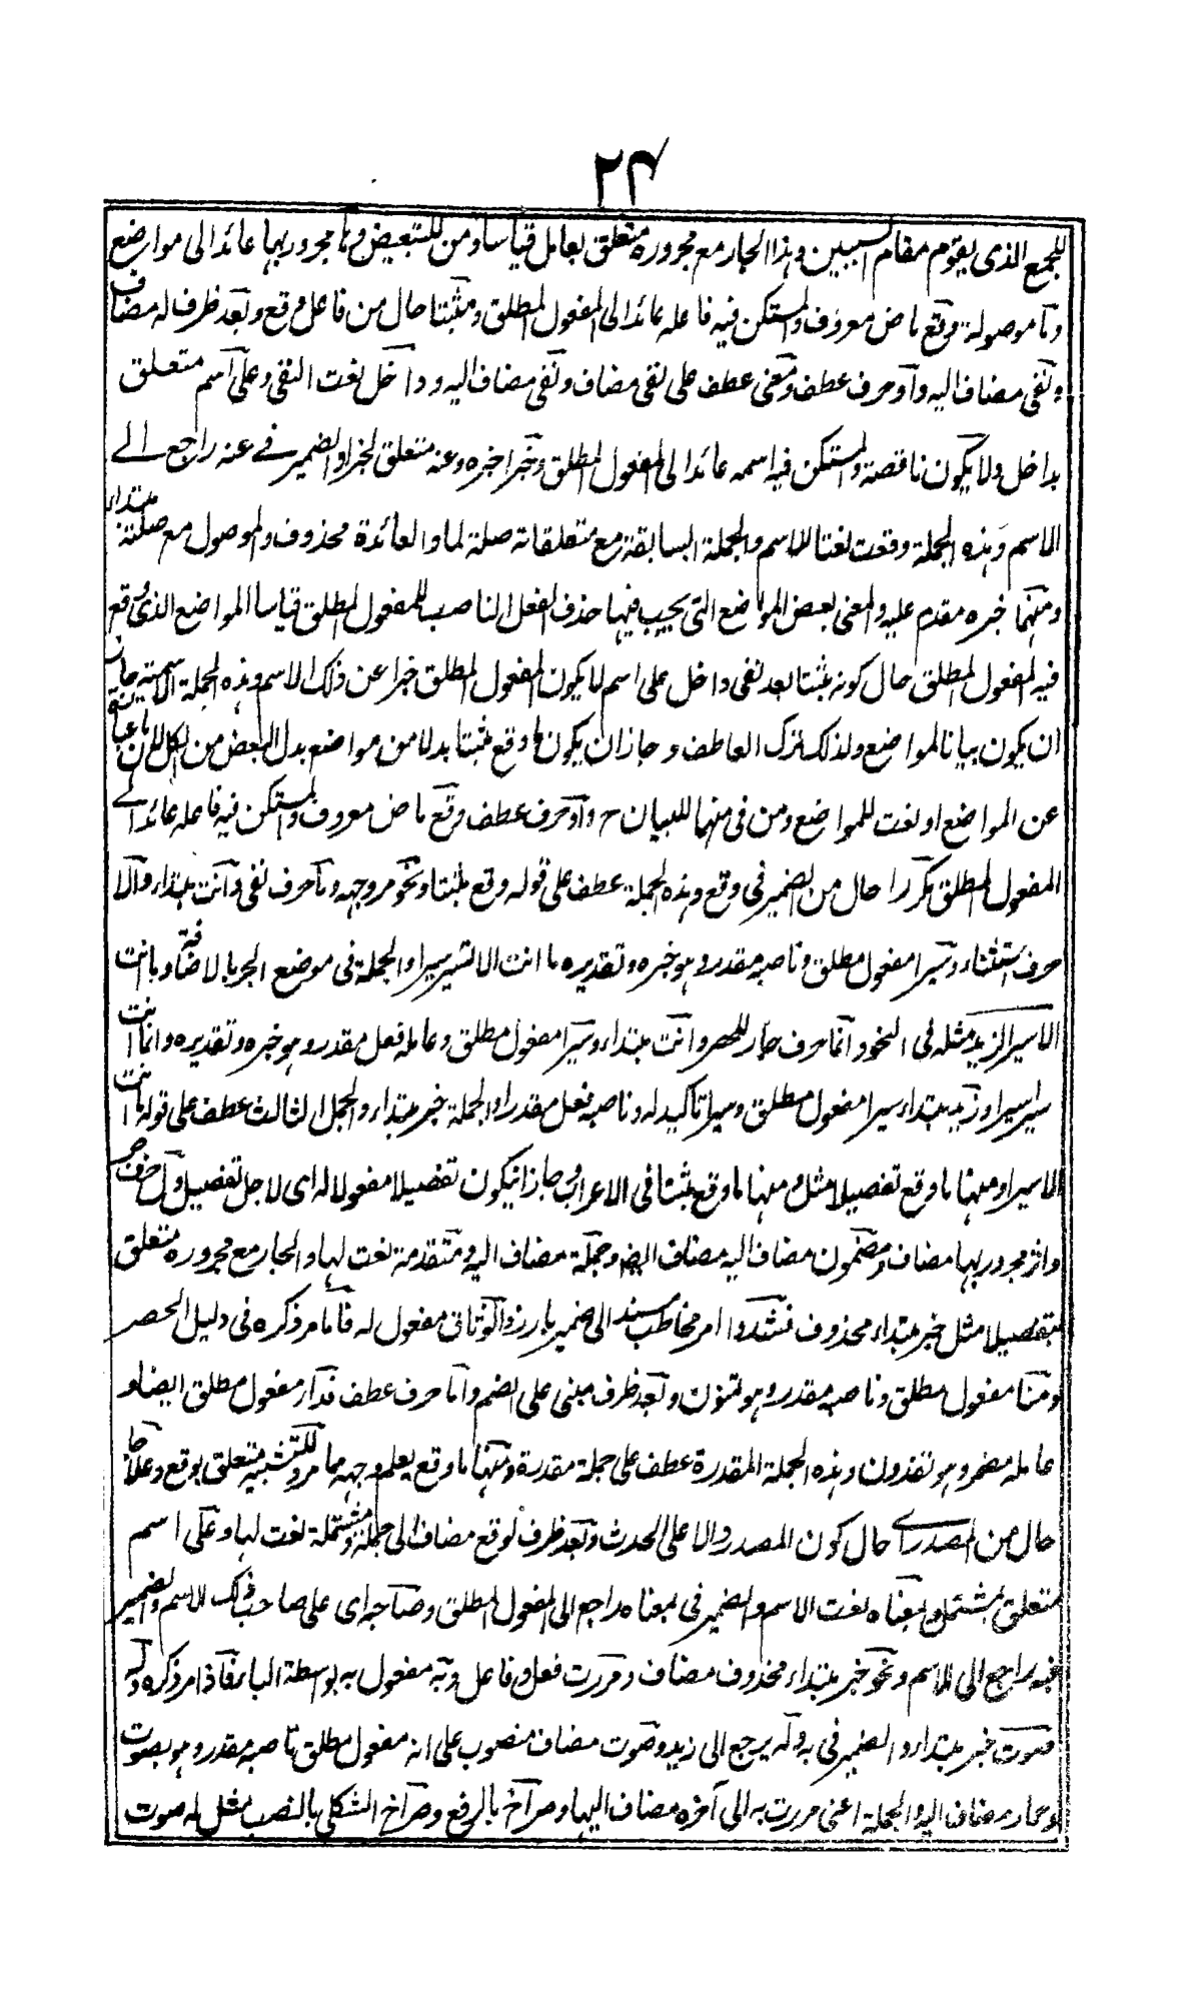 ٢٤
للجمع الذى يقوم مقام السببين وهذا الجار مع مجروره متعلق بعامل قياسا ومن للتبعيض وها مجرور بها عائد الى مواضع
وما موصولة وقع ماض معروف والمستكن فيه فاعله عائد الى المفعول المطلق ومثبتا حال من فاعل وقع وبعد ظرف له مضاف
ونفى مضاف اليه واو حرف عطف ومعنى عطف على نفى مضاف ونفى مضاف اليه وداخل نعت النفى وعلى اسم متعلق
بداخل ولا يكون ناقصة والمستكن فيه اسمه عائد الى المفعول المطلق وخبرا خبره وعنه متعلق لخبرا والضمير فى عنه راجع الى
الاسم وهذه الجملة وقعت نعتا للاسم والجملة السابقة مع متعلقاته صلة لما والعائدة محذوف والموصول مع صلته مبتداء
ومنهما خبره مقدم عليه والمعنى بعض المواضع التى يجب فيها حذف الفعل الناصب للمفعول المطلق قياسا المواضع الذى وقع
فيه المفعول المطلق حال كونه مثبتا بعد نفى داخل على اسم لا يكون المفعول المطلق خبرا عن ذلك الاسم وهذه الجملة الاسمية جاز
ان يكون بيانا للمواضع ولذلك ترك العاطف وجاز ان يكون ما وقع مثبتا بدلا من مواضع بدل البعض من الكل
عن المواضع او نعت للمواضع ومن فى منها للبيان ح واو حرف عطف وقع ماض معروف والمستكن فيه فاعله عائد الى
المفعول المطلق مكررا حال من الضمير فى وقع وهذه الجملة عطف على قوله وقع مثبتا ونحو مر وجهه وما حرف نفى وانت مبتداء والا
حرف استثناء وسيرا مفعول مطلق وناصبه مقدر وهو خبره وتقديره ما انت الا تسير سيرا والجملة فى موضع الجر بالاضافة وما انت
الا سير البريد مثله فى النحو وانما حرف جار للحصر وانت مبتداء وسيرا مفعول مطلق وعامله فعل مقدر وهو خبره وتقديره وانما انت
سيرا سيرا وزيد مبتداء سيرا مفعول مطلق وسيرا تاكيد له وناصبه فعل مقدر او الجملة خبر مبتداء والجمل الثالث عطف على قوله ما انت
الا سيرا ومنها ما وقع تفصيلا مثل ومنها ما وقع مثبتا فى الاعراب وجاز ان يكون تفصيلا مفعولا له اى لاجل تفصيل ول حرف جر
واثر مجرور بها مضاف ومضمون مضاف اليه مضاف ايضا وجملة مضاف اليه ومتقدمة نعت لها والجار مع مجروره متعلق
بتفصيلا مثل خبر مبتداء محذوف فشدوا امر مخاطب مسند الى ضمير بارز والوثاق مفعول له فاما مر ذكره فى دليل الحصر
ومنا مفعول مطلق وناصبه مقدر وهو تمنون وبعد ظرف مبنى على الضم واما حرف عطف فداء مفعول مطلق ايضا و
عامله مضمر وهو تفدون وهذه الجملة المقدرة عطف على جملة مقدرة ومنها ما وقع يعلم وجهه مما مر وللتشبيه متعلق بوقع وعلاجا
حال من المصدر اى حال كون المصدر والا على الحدث وبعد ظرف لوقع مضاف الى جملة ومشتملة نعت لها وعلى اسم
متعلق بمشتملة وبمعناه نعت الاسم والضمير فى بمعناه راجع الى المفعول المطلق وصاحبه اى على صاحب ذلك الاسم والضمير
فيه راجع الى الاسم ونحو خبر مبتداء محذوف مضاف ومررت فعل وفاعل وبه مفعول به بواسطة الباء فاذا مر ذكره وله
صوت خبر مبتداء والضمير فى به وله يرجع الى زيد وصوت مضاف منصوب على انه مفعول مطلق ناصبه مقدر وهو يصوت
وحمار مضاف اليه والجملة اعنى مررت به الى آخره مضاف اليها وصراخ بالرفع وصراخ الثكلى بالنصب مثل له صوت